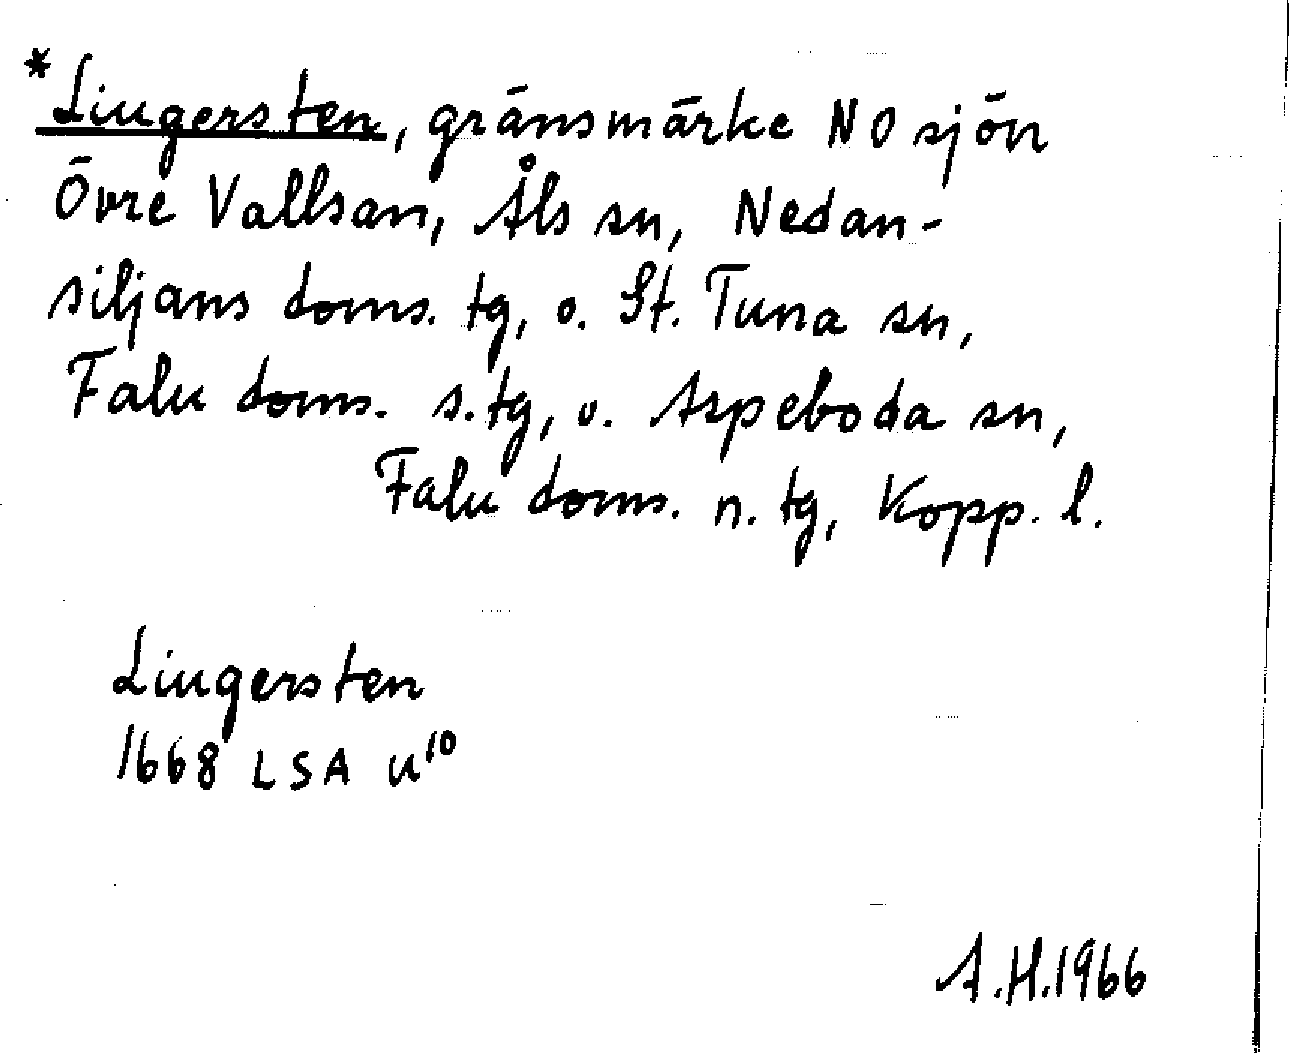 *Liugersten, gränsmärke NO sjön
Övre Vallsan, Åls sn, Nedan-
siljans doms. tg, o. St. Tuna sn,
Falu doms. s. tg, o. Aspeboda sn,
Falu doms. n. tg, Kopp. l.
Liugersten
1668 LSA u¹⁰
A.H.1966